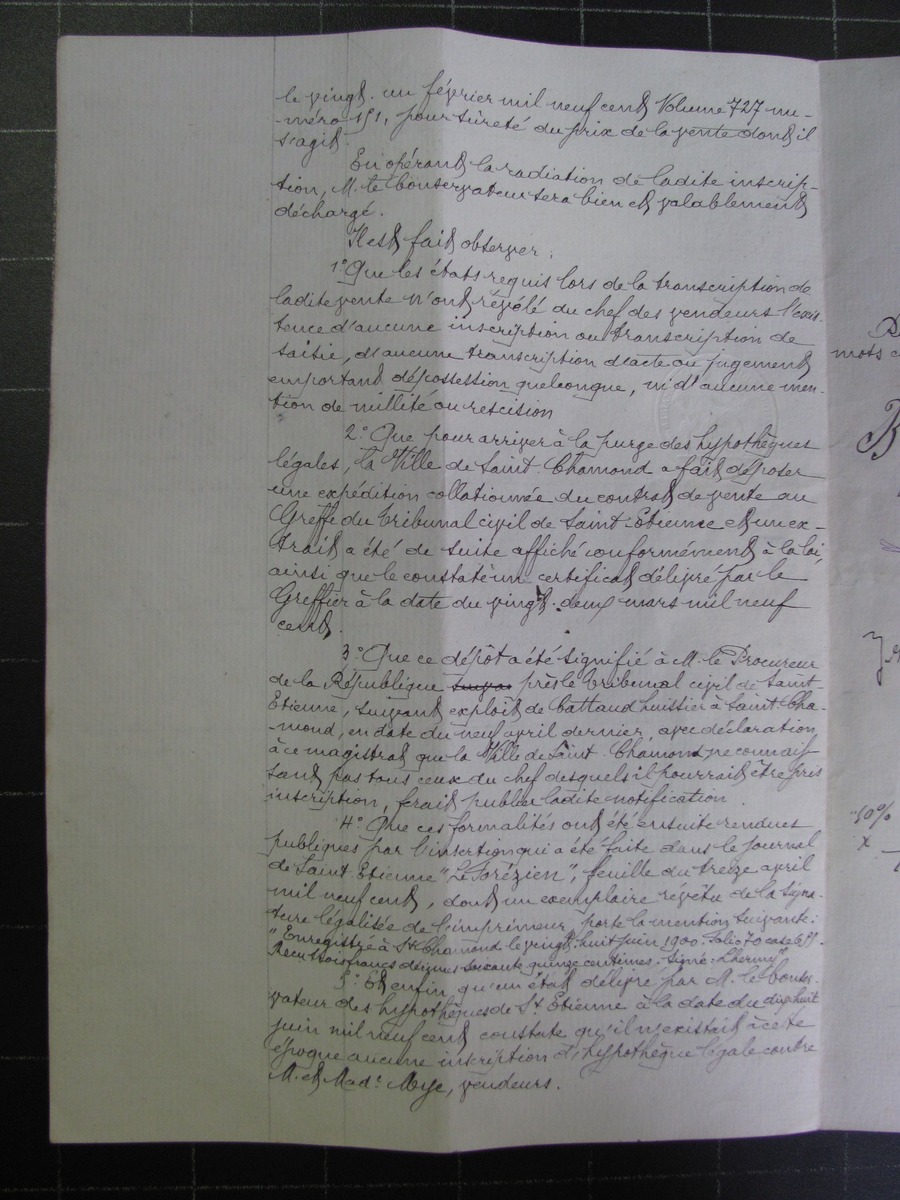 le vingt-un février mil neuf cent Volume 727 nu-
-méro 151, pour sûreté du prix de la vente dont il
s'agit.
En opérant la radiation de ladite inscrip-
tion, M. le Conservateur sera bien et valablement
déchargé.
Il est fait observer:
1° Que les états requis lors de la transcription de
ladite vente n'ont révélé du chef des vendeurs l'exis-
tence d'aucune inscription ou transcription de
saisie, d'aucune transcription d'acte ou jugement
emportant dépossession quelconque, ni d'aucune men-
tion de nullité ou rescision
2° Que pour arriver à la purge des hypothèques
légales, la Ville de Saint-Chamond a fait déposer
une expédition collationnée du contrat de vente au
Greffe du Tribunal civil de Saint-Etienne et un ex-
trait a été de suite affiché conformément à la loi,
ainsi que le constate un certificat délivré par le
Greffier à la date du vingt-deux mars mil neuf
cent.
3° Que ce dépôt a été signifié à M. le Procureur
de la République près le Tribunal civil de Saint-
Etienne, suivant exploit de Cattaud huissier à Saint-Cha-
-mond, en date du neuf avril dernier, avec déclaration
à ce magistrat que la Ville de Saint-Chamond ne connais-
sant pas tous ceux du chef desquels il pourrait être pris
inscription, ferait publier ladite notification.
4° Que ces formalités ont été ensuite rendues
publiques par l'insertion qui a été faite dans le journal
de Saint-Etienne "Le Forézien", feuille du treize avril
mil neuf cent, dont un exemplaire revêtu de la signa-
ture légalisée de l'imprimeur, porte la mention suivante:
"Enregistré à St Chamond le vingt-huit juin 1900. Folio 70 case
Reçu trois francs décimes soixante quinze centimes. Signé: Lhermy"
5° Et enfin qu'un état délivré par M. le Conser-
vateur des hypothèques de St Etienne à la date du dix huit
juin mil neuf cent constate qu'il n'existait à cette
époque aucune inscription d'hypothèque légale contre
M. et Made Meje, vendeurs.
mots
10%
x